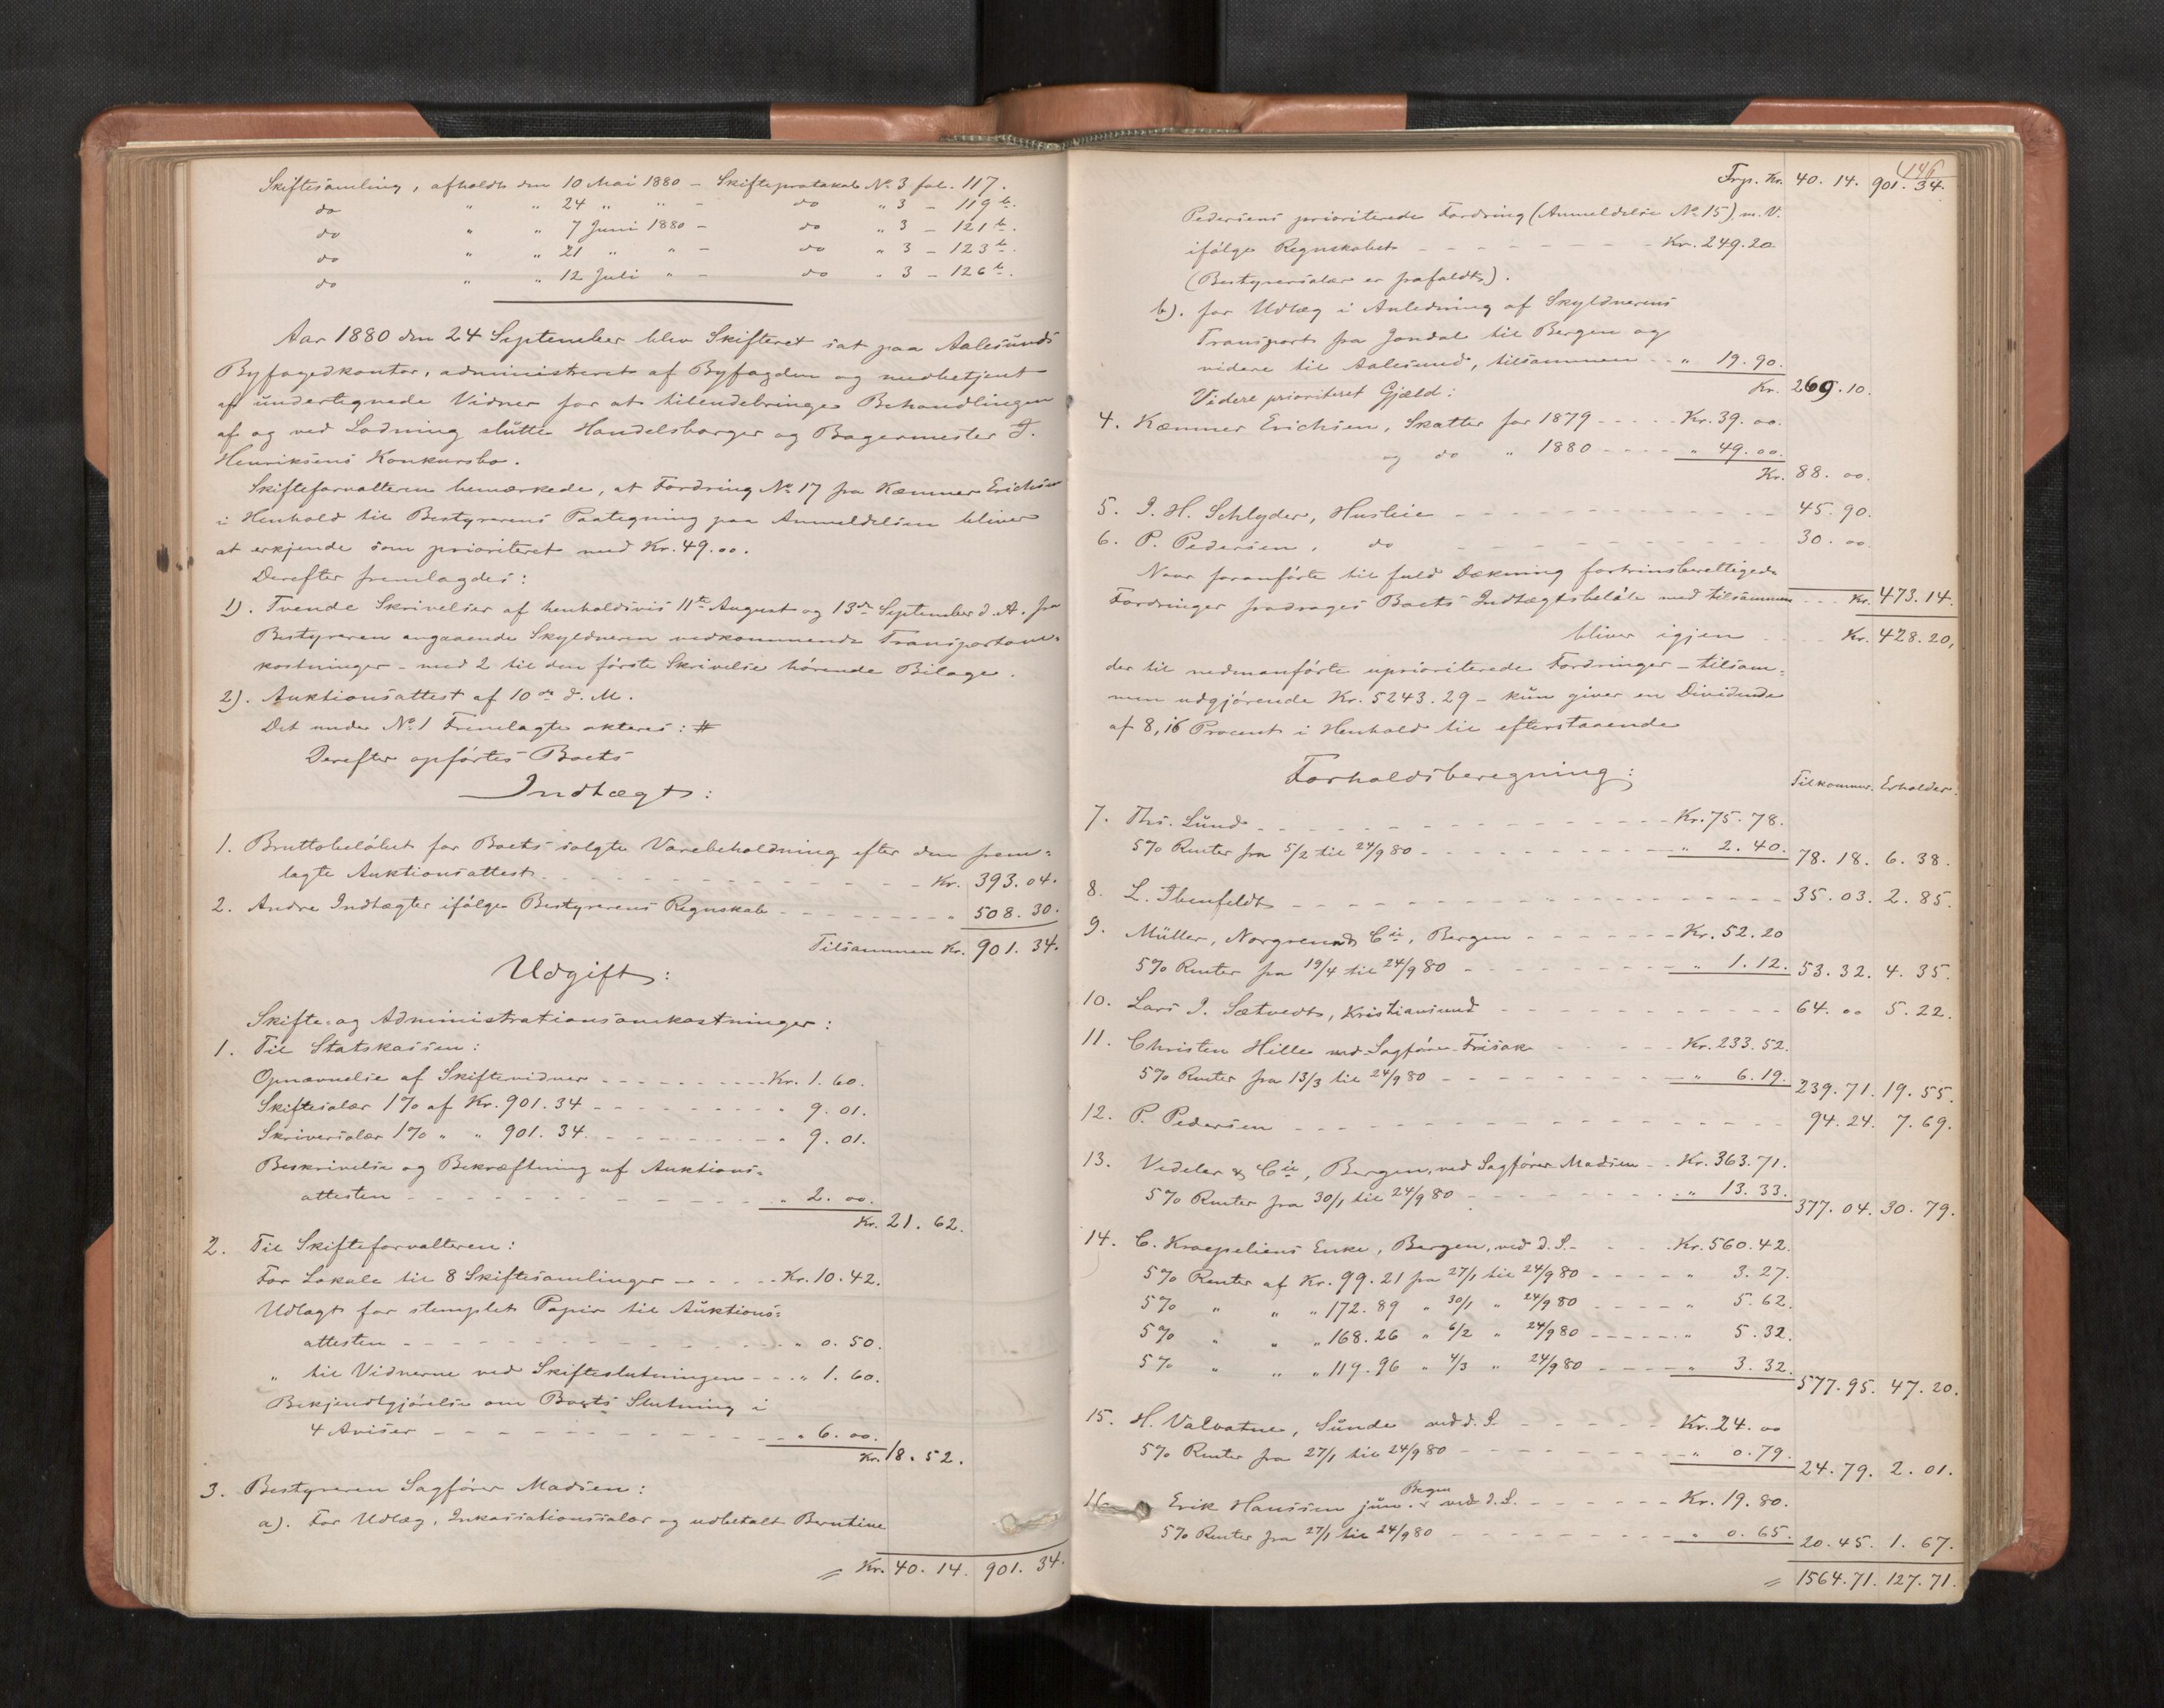 Skiftesamling, afholdt den 10 Mai 1880 – Skifteprotokol No 3 fol. 117.
do " " 24 " " – do " 3 – 119 b.
do " " 7 Juni 1880 – do " 3 – 121 b.
do " " 21 " " – do " 3 – 123 b.
do " " 12 Juli " – do " 3 – 126 b.
Aar 1880 den 24 September blev Skifteret sat paa Aalesunds
Byfogedkontor, administreret af Byfogden og medbetjent
af undertegnede Vidner for at tilendebringe Behandlingen
af og ved Lodning slutte Handelsborger og Bagermester J.
Henriksens Konkursbo.
Skifteforvalteren bemærkede, at Fordring No 17 fra Kæmner Erichsen
i Henhold til Bestyrerens Paategning paa Anmeldelsen bliver
at erkjende som prioriteret med Kr. 49.00.
Derefter fremlagdes:
1). Tvende Skrivelser af henholdsvis 11te August og 13de September d. A. fra
Bestyreren angaaende Skyldneren vedkommende Transportom-
kostninger – med 2 til den første Skrivelse hørende Bilage.
2). Auktionsattest af 10de d. M.
Det under No 1 Fremlagte akteres: #
Derefter opførtes Boets
Indtægt:
1. Bruttobeløbet for Boets solgte Varebeholdning efter den frem-
lagte Auktionsattest - - - Kr. 393.04.
2. Andre Indtægter ifølge Bestyrerens Regnskab - - - " 508.30.
Tilsammen Kr. 901.34.
Udgift:
Skifte- og Administrationsomkostninger:
1. Til Statskassen:
Opnævnelse af Skiftevidner - - - Kr. 1.60.
Skiftesalær 1% af Kr. 901.34 - - - " 9.01.
Skriversalær 1% " " 901.34. - - - " 9.01.
Beskrivelse og Bekræftning af Auktions-
attesten - - - " 2.00.
Kr. 21.62.
2. Til Skifteforvalteren:
For Lokale til 8 Skiftesamlinger - - - Kr. 10.42.
Udlagt for stemplet Papir til Auktions-
attesten - - - " 0.50.
" til Vidnerne ved Skifteslutningen - - - " 1.60.
Bekjendtgjørelse om Boets Slutning i
4 Aviser - - - " 6.00.
Kr. 18.52.
3. Bestyreren Sagfører Madsen:
a). For Udlæg, Inkassationssalær og udbetalt Berntine
= Kr. 40.14. 901.34.
146
Frp. Kr. 40.14. 901.34.
Pedersens prioriterede Fordring (Anmeldelse No 15) m. V.
ifølge Regnskabet - - - Kr. 249.20.
(Bestyrersalær er frafaldt).
b). for Udlæg i Anledning af Skyldnerens
Transport fra Jondal til Bergen og
videre til Aalesund, tilsammen - - " 19.90.
Kr. 269.10.
Videre prioriteret Gjæld:
4. Kæmner Erichsen, Skatter for 1879 - - - Kr. 39.00.
og do " 1880 - - - " 49.00.
Kr. 88.00.
5. J. H. Schlyder, Husleie - - - 45.90.
6. P. Pedersen, do - - - 30.00.
Naar foranførte til fuld Dækning fortrinsberettigede
Fordringer fradrages Boets Indtægtsbeløb med tilsammen - - - Kr. 473.14.
bliver igjen - - Kr. 428.20,
der til nedenanførte uprioriterede Fordringer – tilsam-
men udgjørende Kr. 5243.29 – kun giver en Dividende
af 8,16 Procent i Henhold til efterstaaende
Forholdsberegning:
Tilkommer. Erholder.
7. Ths. Lund - - - Kr. 75.78.
5% Renter fra 5/2 til 24/9 80 - - - " 2.40. 78.18. 6.38.
8. L. Ibenfeldt - - - 35.03. 2.85.
9. Müller, Norgreend & Cie, Bergen - - - Kr. 52.20
5% Renter fra 19/4 til 24/9 80 - - - " 1.12. 53.32. 4.35.
10. Lars J. Sætvedt, Kristiansund - - - 64.00 5.22.
11. Christen Hille ved Sagfører Frisak - - - Kr. 233.52.
5% Renter fra 13/3 til 24/9 80 - - - " 6.19. 239.71. 19.55.
12. P. Pedersen - - - 94.24. 7.69.
13. Vedeler & Cie, Bergen, ved Sagfører Madsen - - Kr. 363.71.
5% Renter fra 30/1 til 24/9 80 - - - " 13.33. 377.04. 30.79.
14. C. Kroepeliens Enke, Bergen, ved d. S. - - - Kr. 560.42.
5% Renter af Kr. 99.21 fra 27/1 til 24/9 80 - - - " 3.27.
5% " " " 172.89 " 30/1 " 24/9 80 - - - " 5.62.
5% " " " 168.26 " 6/2 " 24/9 80 - - - " 5.32.
5% " " " 119.96 " 4/3 " 24/9 80 - - - " 3.32. 577.95. 47.20.
15. H. Valvatne, Sunde ved d. S. - - - Kr. 24.00
5% Renter fra 27/1 til 24/9 80 - - - " 0.79. 24.79. 2.01.
16 Erik Hanssen jun. Bergen ved d. S. - - - Kr. 19.80.
5% Renter fra 27/1 til 24/9 80 - - - " 0.65. 20.45. 1.67.
= 1564.71. 127.71.